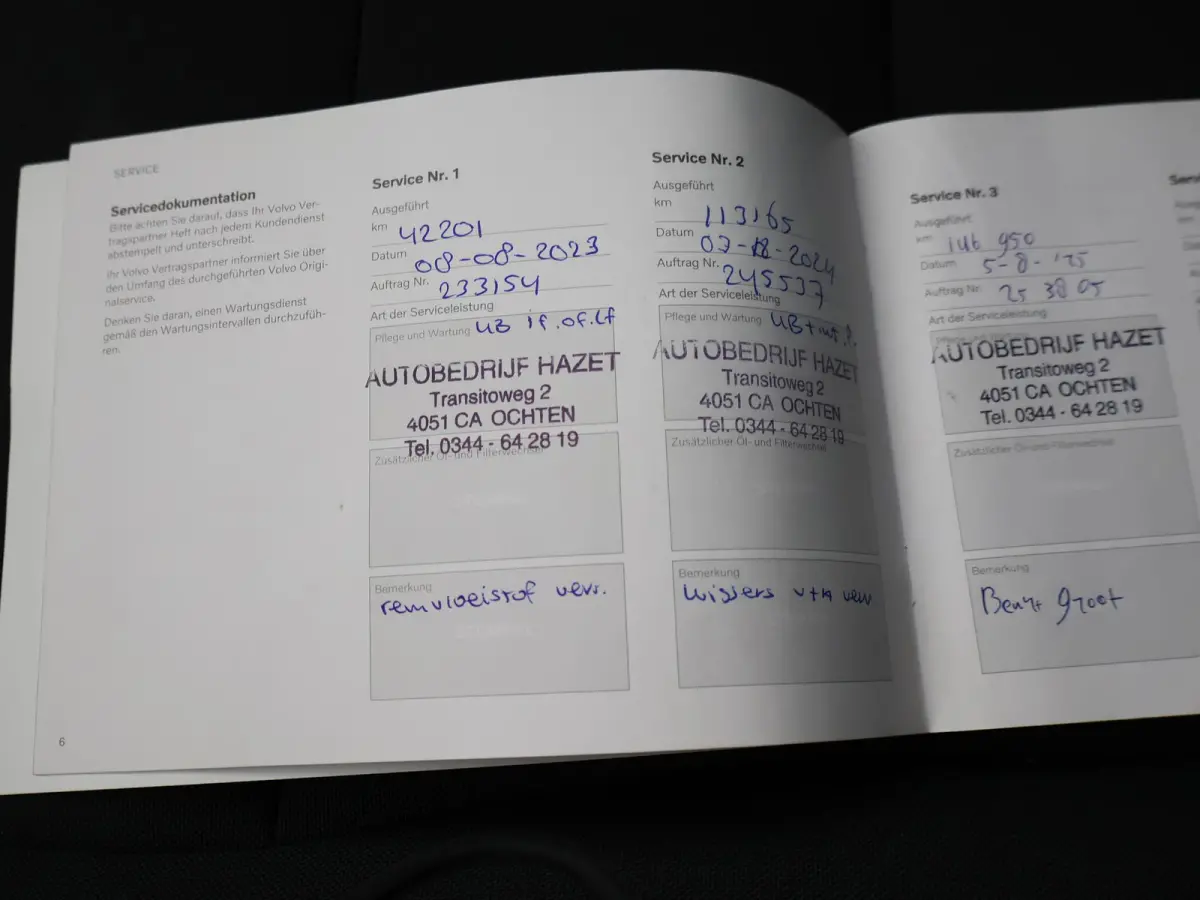 SERVICE
Servicedokumentation
Bitte achten Sie darauf, dass Ihr Volvo Ver-
tragspartner Heft nach jedem Kundendienst
abstempelt und unterschreibt.
Ihr Volvo Vertragspartner informiert Sie über
den Umfang des durchgeführten Volvo Origi-
nalservice.
Denken Sie daran, einen Wartungsdienst
gemäß den Wartungsintervallen durchzufüh-
ren.
6
Service Nr. 1
Ausgeführt
km 42201
Datum 08-08-2023
Auftrag Nr. 233154
Art der Serviceleistung
Pflege und Wartung
AUTOBEDRIJF HAZET
Transitoweg 2
4051 CA OCHTEN
Tel. 0344 - 64 28 19
Zusätzlicher Öl- und Filterwechsel
Bemerkung
remvloeistof verv.
Service Nr. 2
Ausgeführt
km 113165
Datum
Auftrag Nr. 245537
Art der Serviceleistung
Pflege und Wartung
AUTOBEDRIJF HAZET
Transitoweg 2
4051 CA OCHTEN
Tel. 0344 - 64 28 19
Zusätzlicher Öl- und Filterwechsel
Bemerkung
wissers
Service Nr. 3
Ausgeführt
km 146 950
Datum 5-8-'25
Auftrag Nr. 25 38 05
Art der Serviceleistung
AUTOBEDRIJF HAZET
Transitoweg 2
4051 CA OCHTEN
Tel. 0344 - 64 28 19
Zusätzlicher Öl- und Filterwechsel
Bemerkung
groot